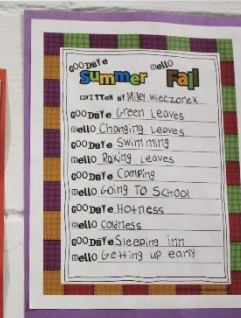 GOODBYE Hello
Summer Fall
WRITTEN BY Miley Wieczorek
GOODBYE Green Leaves
Hello Changing Leaves
GOODBYE Swimming
Hello Raking Leaves
GOODBYE Camping
Hello Going To School
GOODBYE Hotness
Hello Coldness
GOODBYE Sleeping inn
Hello Getting up early